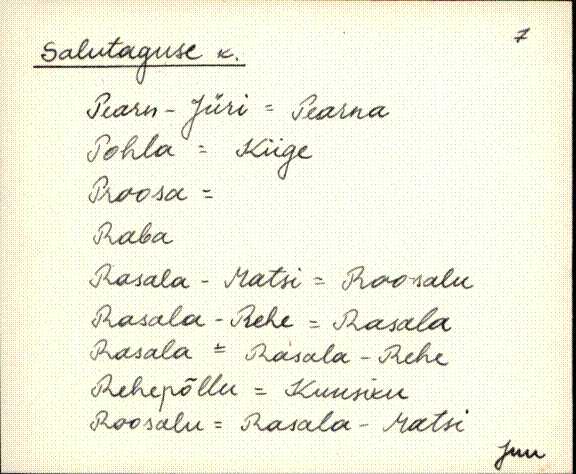 7
Salutaguse k.
Pearn - Jüri = Pearna
Pohla = Kiige
Proosa =
Raba
Rasala - Matsi = Roosalu
Rasala - Rehe = Rasala
Rasala = Rasala - Rehe
Rehepõllu = Kuusiku
Roosalu = Rasala - Matsi
Juu